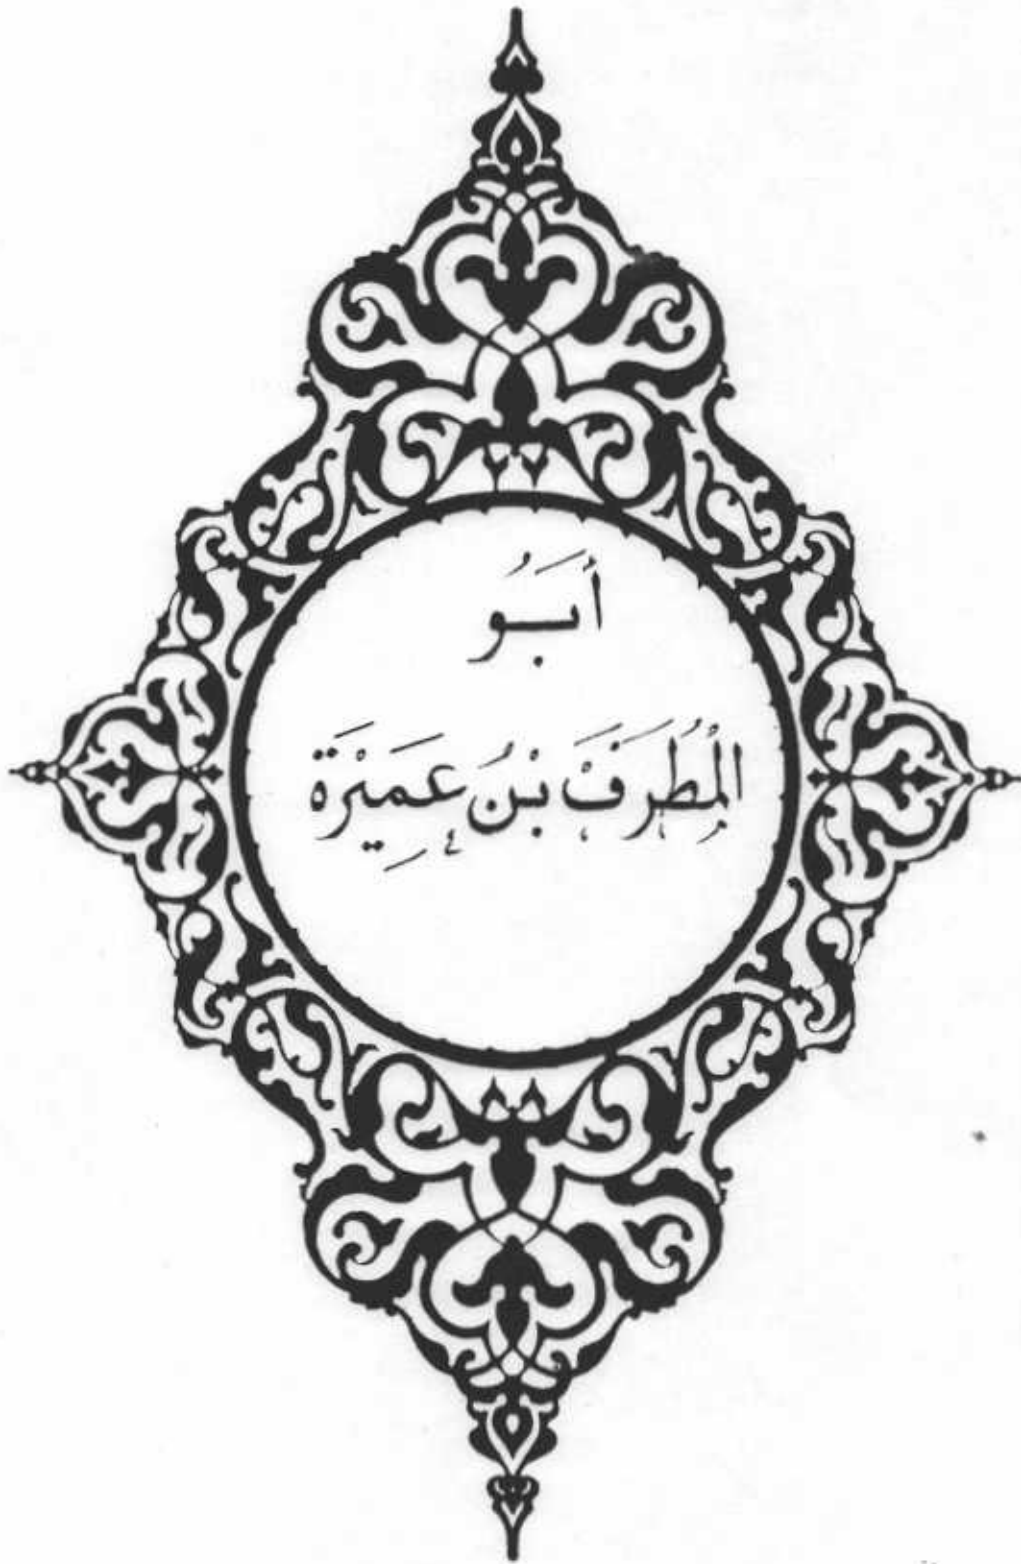 أَبَوُ
الْمُطَرَفْ بْنُ عَمِيْرَة